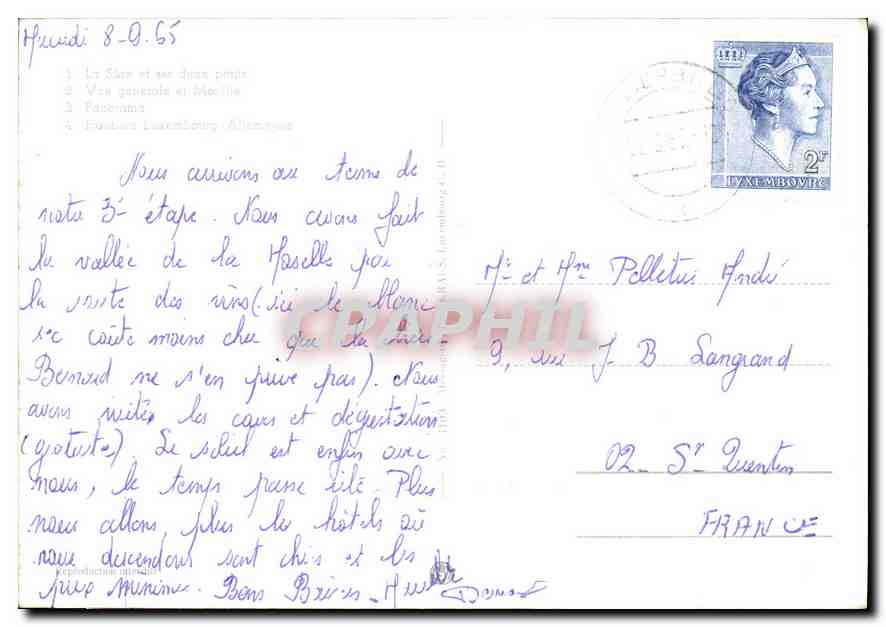 8-9-65
1 La Sûre et ses deux ponts
2 Vue générale et Moselle
3 Panorama
4 Frontière Luxembourg-Allemagne
Nous arrivons au terme de
notre 3e étape. Nous avons fait
la vallée de la Moselle par
la route des vins (ici le blanc
sec coûte moins cher que la bière
Bernard ne s'en prive pas). Nous
avons visité les caves et dégustation
(gratuite). Le soleil est enfin avec
nous, le temps passe vite. Plus
nous allons, plus les hôtels où
nous descendons sont chics et les
prix minimes. Bons Baisers
Bernard
Reproduction interdite
Luxembourg
CRAPHIL
2F
LUXEMBOURG
Mr et Mme Pelletier André
9, rue J B Langrand
02 - St Quentin
FRANCE